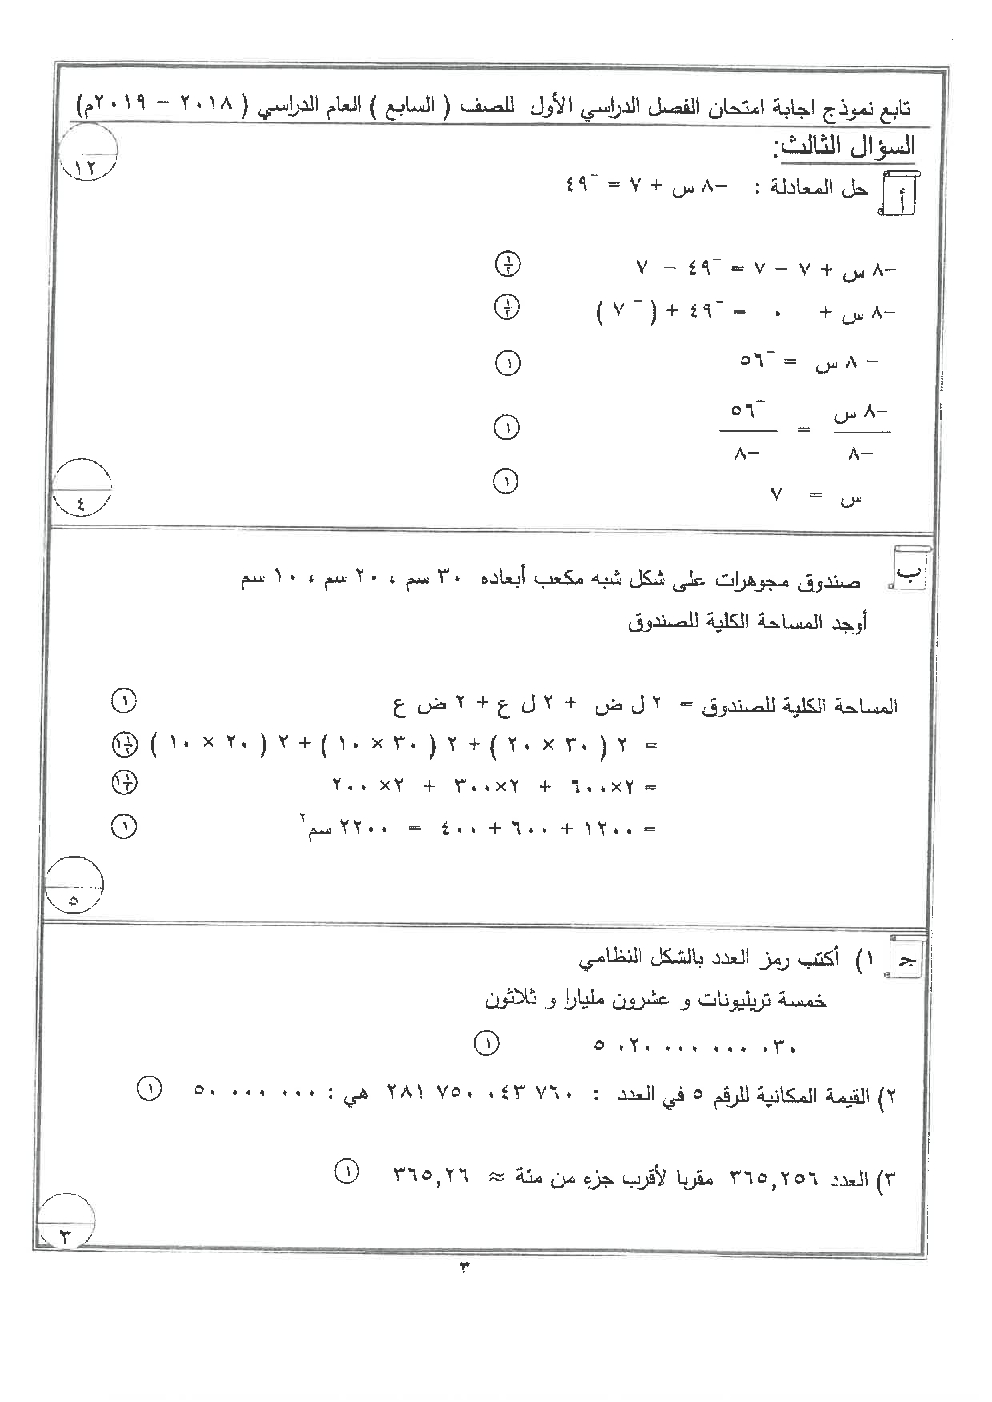 تابع نموذج اجابة امتحان الفصل الدراسي الأول للصف ( السابع ) العام الدراسي ( ٢٠١٨ – ٢٠١٩م)
السؤال الثالث:
١٢
أ
حل المعادلة : –٨ س + ٧ = ⁻٤٩
–٨ س + ٧ – ٧ = ⁻٤٩ – ٧ (١/٢)
–٨ س + ٠ = ⁻٤٩ + ( ⁻٧ ) (١/٢)
– ٨ س = ⁻٥٦ (١)
–٨ س / –٨ = ⁻٥٦ / –٨ (١)
س = ٧ (١)
٤
ب
صندوق مجوهرات على شكل شبه مكعب أبعاده ٣٠ سم ، ٢٠ سم ، ١٠ سم
أوجد المساحة الكلية للصندوق
المساحة الكلية للصندوق = ٢ ل ض + ٢ ل ع + ٢ ض ع (١)
= ٢ ( ٣٠ × ٢٠ ) + ٢ ( ٣٠ × ١٠ ) + ٢ ( ٢٠ × ١٠ ) (١ ١/٢)
= ٢×٦٠٠ + ٢×٣٠٠ + ٢× ٢٠٠ (١ ١/٢)
= ١٢٠٠ + ٦٠٠ + ٤٠٠ = ٢٢٠٠ سم٢ (١)
٥
جـ
١) أكتب رمز العدد بالشكل النظامي
خمسة تريليونات و عشرون مليارا و ثلاثون
٥ ٠٢٠ ٠٠٠ ٠٠٠ ٠٣٠ (١)
٢) القيمة المكانية للرقم ٥ في العدد : ٢٨١ ٧٥٠ ٠٤٣ ٧٦٠ هي : ٥٠ ٠٠٠ ٠٠٠ (١)
٣) العدد ٣٦٥,٢٥٦ مقربا لأقرب جزء من مئة ≈ ٣٦٥,٢٦ (١)
٣
٣